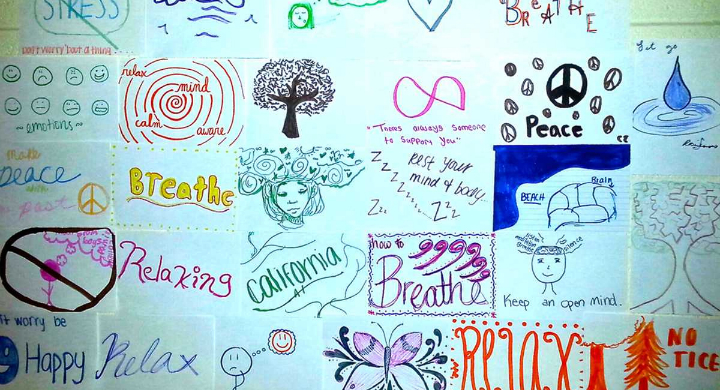 STRESS
Don't worry 'bout a thing
BREATHE
emotions
relax
mind
calm
aware
"Theres always someone
to support you"
Peace
Let go
make
peace
with
past
Breathe
Zzz
Rest your
mind & body
Zzz
BEACH
Brain
Relaxing
California
how to
Breathe
silence
Keep an open mind.
worry be
Happy
Relax
RELAX
NO
TICE